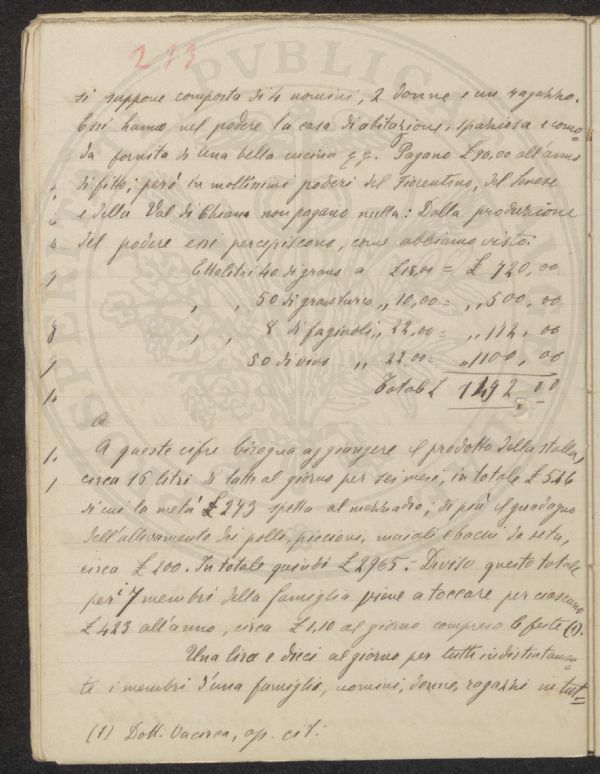 213
si suppone composta di 4 uomini, 2 donne e un ragazzo.
Essi hanno nel podere la casa di abitazione, spaziosa e como-
da fornita di una bella cucina Pagano £ 90,00 all'anno
di fitto; però in moltissimi poderi del Fiorentino, del Senese
e della Val di Chiana non pagano nulla: Dalla produzione
del podere essi percepiscono, come abbiamo visto:
Ettolitri 40 di grano a £ 18,00 = £ 720,00
" " 50 di granturco " 10,00 = " 500,00
" " 8 di fagiuoli " 22,00 = " 172,00
50 di vino " 22,00 = " 1100,00
Total £ 1492,00
A queste cifre bisogna aggiungere il prodotto della stalla,
circa 16 litri di latte al giorno per sei mesi, in totale £ 546
di cui la metà £ 273 spetta al mezzadro; di più il guadagno
dell'allevamento dei polli, piccioni, maiali e bachi da seta,
circa £ 200. In totale quindi £ 2965.- Diviso questo totale
per i 7 membri della famiglia viene a toccare per ciascuno
£ 423 all'anno, circa £ 1,10 al giorno comprese le feste (1).
Una lira e dieci al giorno per tutti indistintamen-
te i membri d'una famiglia, uomini, donne, ragazzi in tut=
(1) Dott. Vacirca, op. cit.
PVBLICA
PROSPERITAS